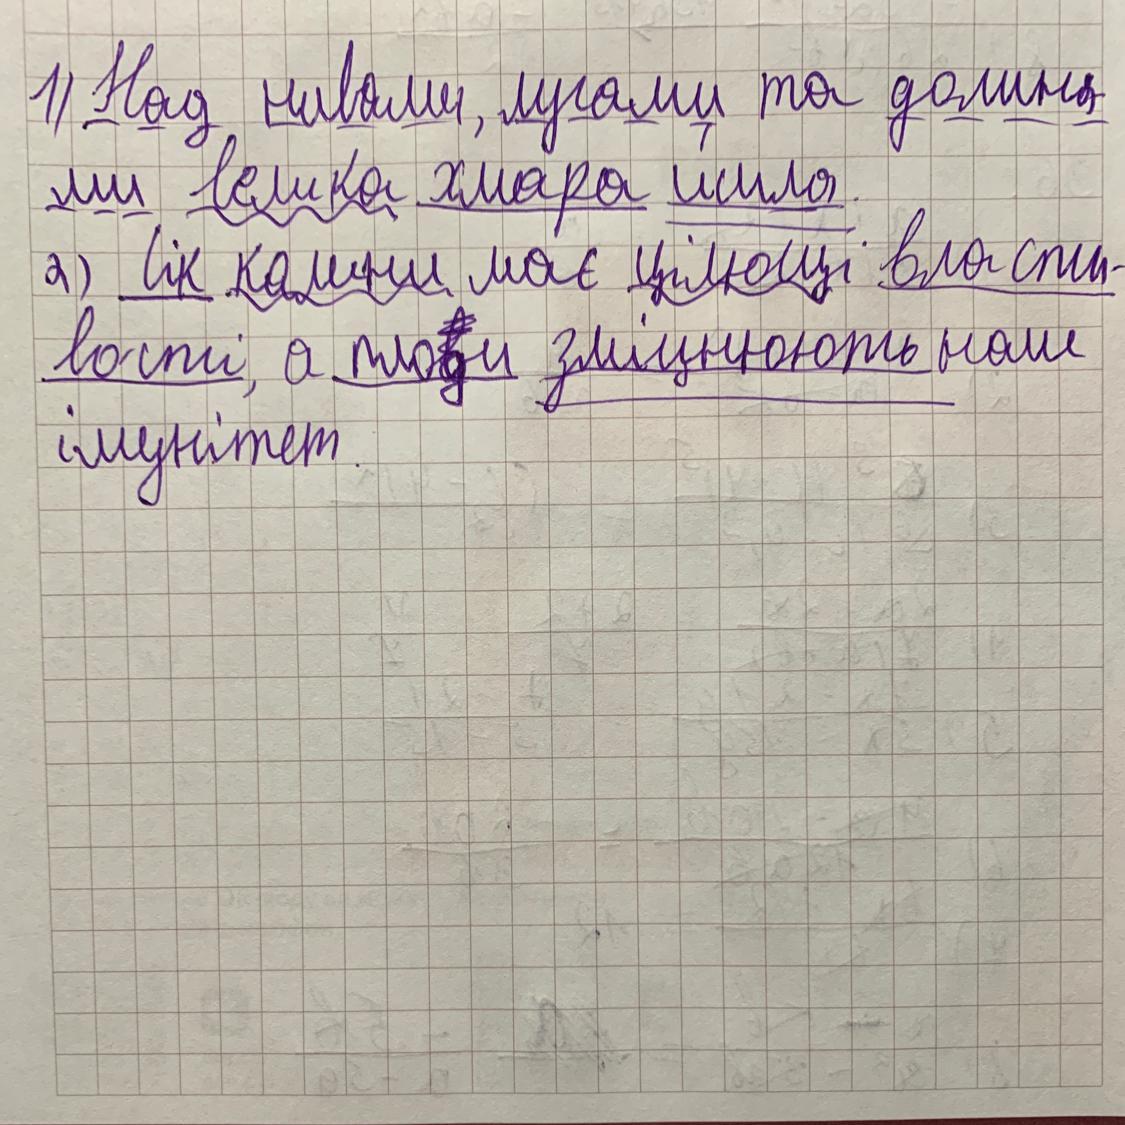 1) Над нивами, лугами та долина
ми велика хмара ишла.
2) Сік калини має цілющі власти-
вості, а плоди зміцнюють наш
імунітет.